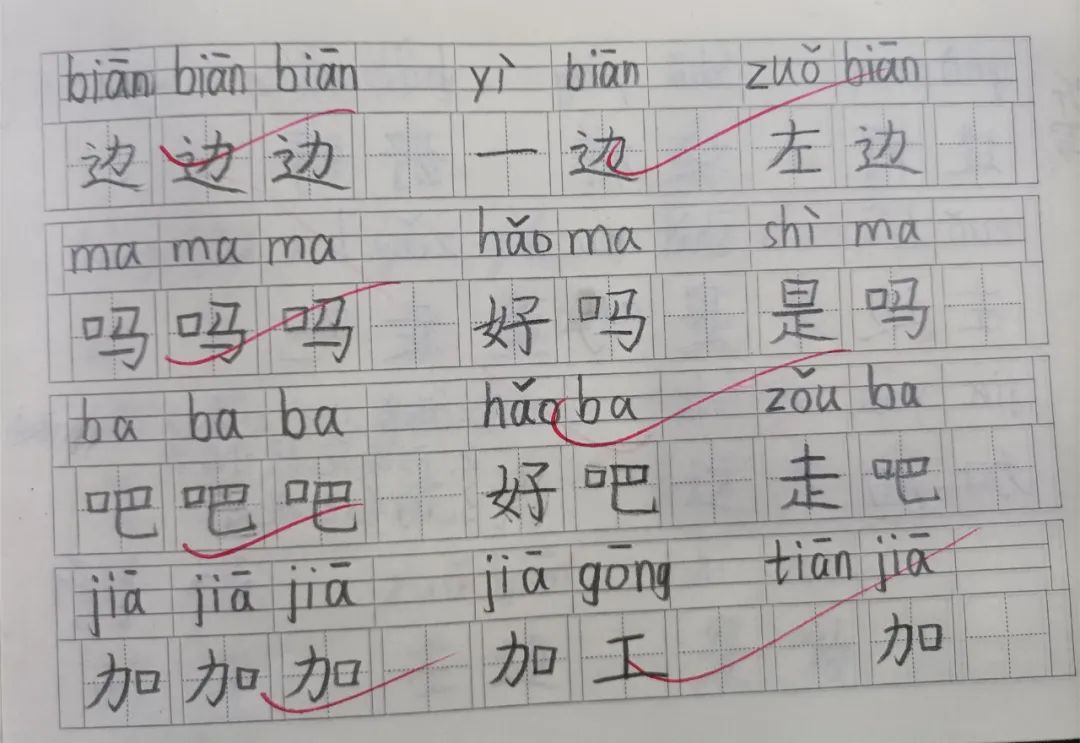 biān biān biān yì biān zuǒ biān
边 边 边 一 边 左 边
ma ma ma hǎo ma shì ma
吗 吗 吗 好 吗 是 吗
ba ba ba hǎo ba zǒu ba
吧 吧 吧 好 吧 走 吧
jiā jiā jiā jiā gōng tiān jiā
加 加 加 加 工 加